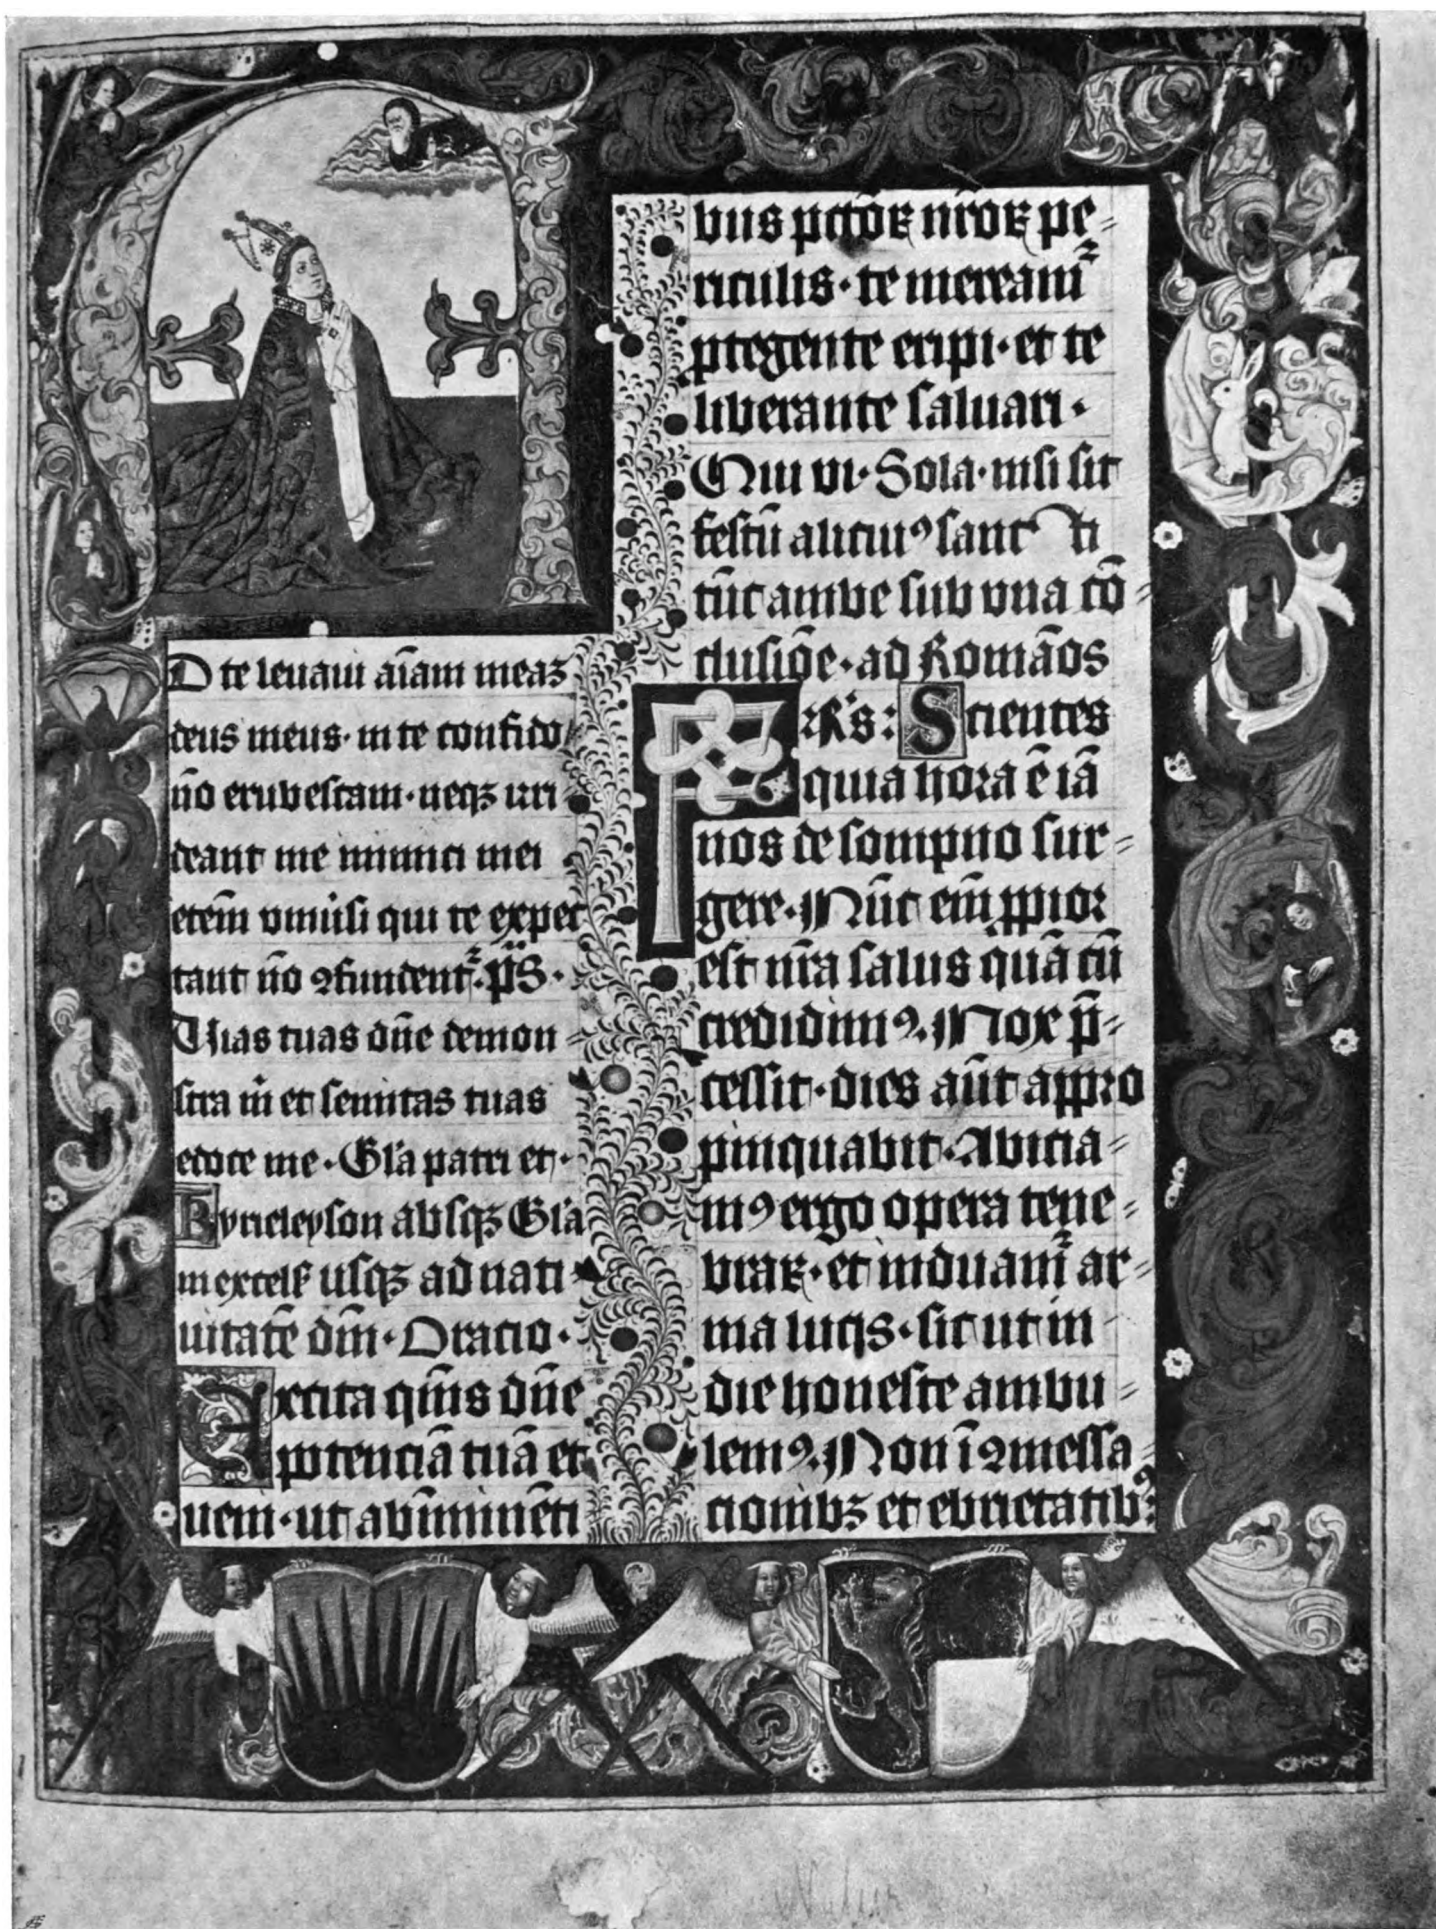 D te leuaui aīam meaꝫ
deus meus· in te confido
nō erubescam· neqꝫ irri
deant me inimici mei
etem̄ vniūsi qui te expec
tant nō ꝯfundent᷑· p̄s·
Vias tuas dūe demon⸗
stra m̄ et semitas tuas
edoce me· Gl̄a patri et·
Kyrieleyson absqꝫ Gl̄a
in excelꝭ usqꝫ ad nati⸗
uitatē dn̄i· Oracio·
Excita qm̄s dn̄e
potenciā tuā et
veni· ut ab īminēti
bus pctōꝝ nr̄oꝝ pe⸗
riculis· te meream᷑
ꝓtegente eripi· et te
liberante saluari·
Qui vi· Sola· nisi sit
festū alicuiꝰ sancti
tūc ambe sub vna cō⸗
clusiōe· ad Romāos
Fr̄s: Scientes
quia hora ē iā
nos de sompno sur⸗
gere· Nūc em̄ ꝓpior
est nr̄a salus quā cū
credidimꝰ· Nox p̄⸗
cessit· dies aūt appro
pinquabit· Abicia⸗
mꝰ ergo opera tene⸗
braꝝ· et induam᷑ ar⸗
ma lucis· sic ut in
die honeste ambu⸗
lemꝰ· Non ī ꝯmessa⸗
cionibꝫ et ebrietatibꝰ: